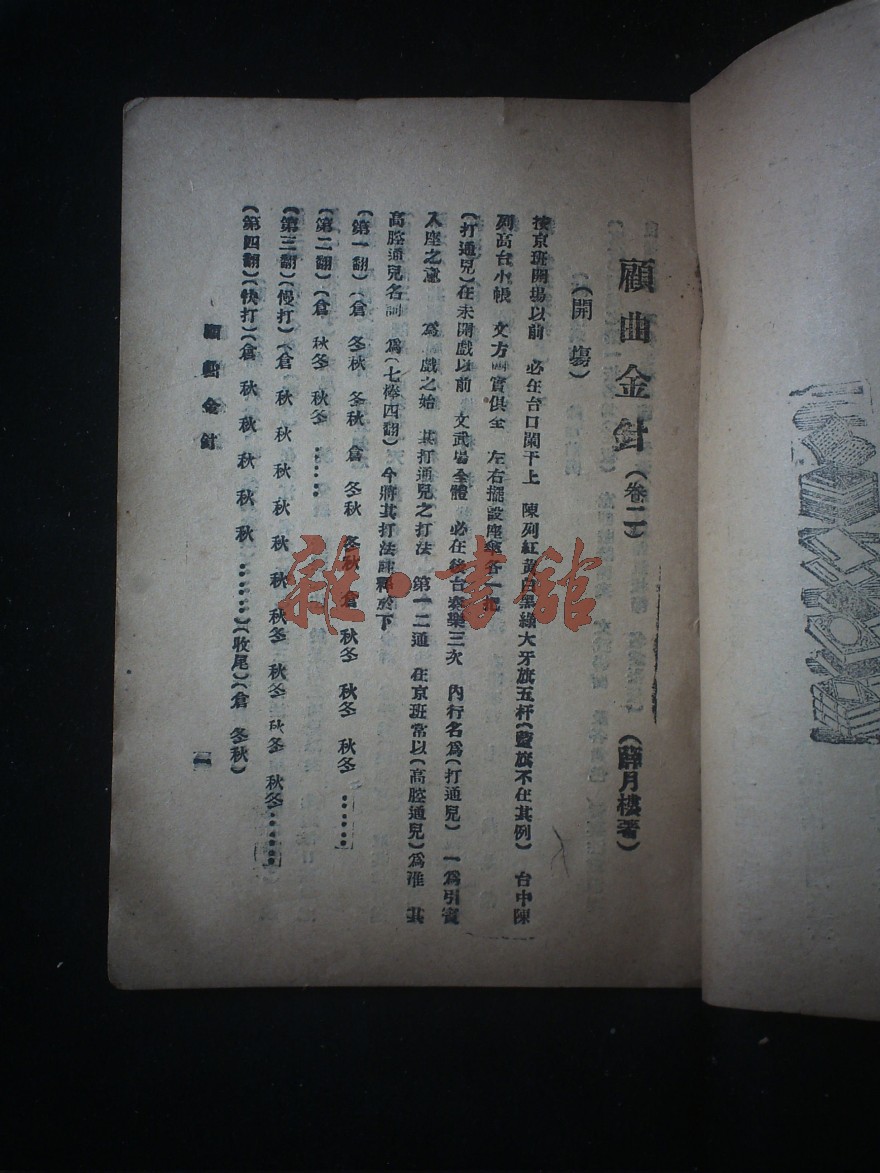 顧曲金針（卷二）　（薛月樓著）
（開塲）
按京班開場以前　必在台口闌干上　陳列紅黃白黑綠大牙旗五杆（藍旗不在其例）　台中陳
列高台小帳　文方四寶俱全　左右擺設座傘各一把
（打通兒）在未開戲以前　文武場全體　必在後台奏樂三次　內行名爲（打通兒）　一爲引賓
入座之意　爲　戲之始　其打通兒之打法　第一二通　在京班常以（高腔通兒）爲准　其
高腔通兒名詞　爲（七棒四翻）　今將其打法　釋於下
（第一翻）（倉　冬秋　冬秋　倉　冬秋　冬秋　倉　秋冬　秋冬　秋冬　……）
（第二翻）（倉　秋冬　秋冬　……
（第三翻）（慢打）（倉　秋　秋　秋　秋　秋　秋冬　秋冬　秋冬　秋冬……）
（第四翻）（快打）（倉　秋　秋　秋　秋　秋　……）（收尾）（倉　冬秋）
顧曲金針
雜·書館